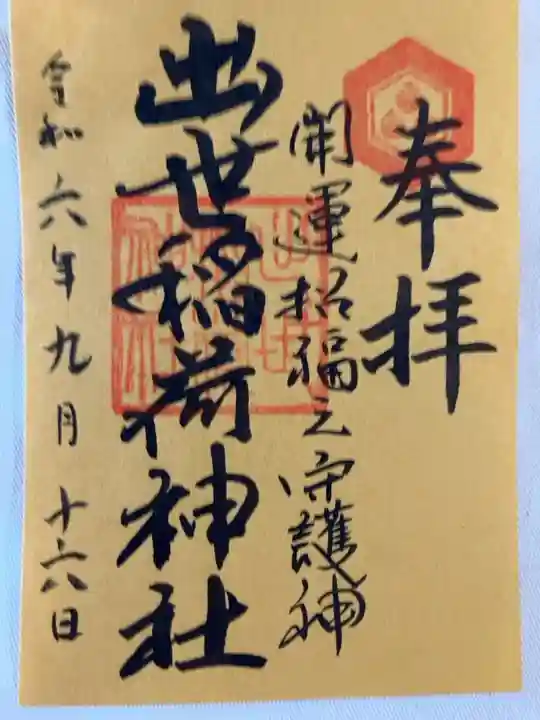 奉拝
開運招福之守護神
出世稲荷神社
令和六年九月十六日